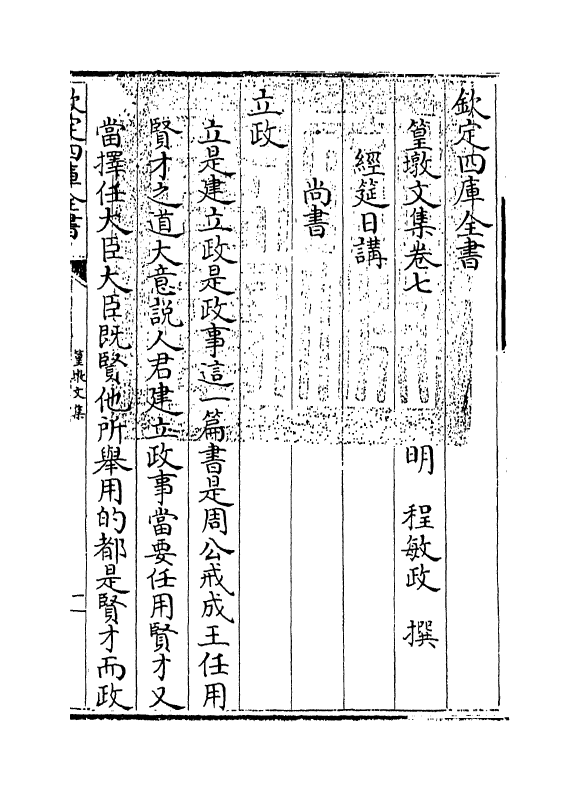 欽定四庫全書
篁墩文集卷七
明 程敏政 撰
經筵日講
尚書
立政
立是建立政是政事這一篇書是周公戒成王任用
賢才之道大意説人君建立政事當要任用賢才又
當擇任大臣大臣既賢他所舉用的都是賢才而政
欽定四庫全書
篁墩文集